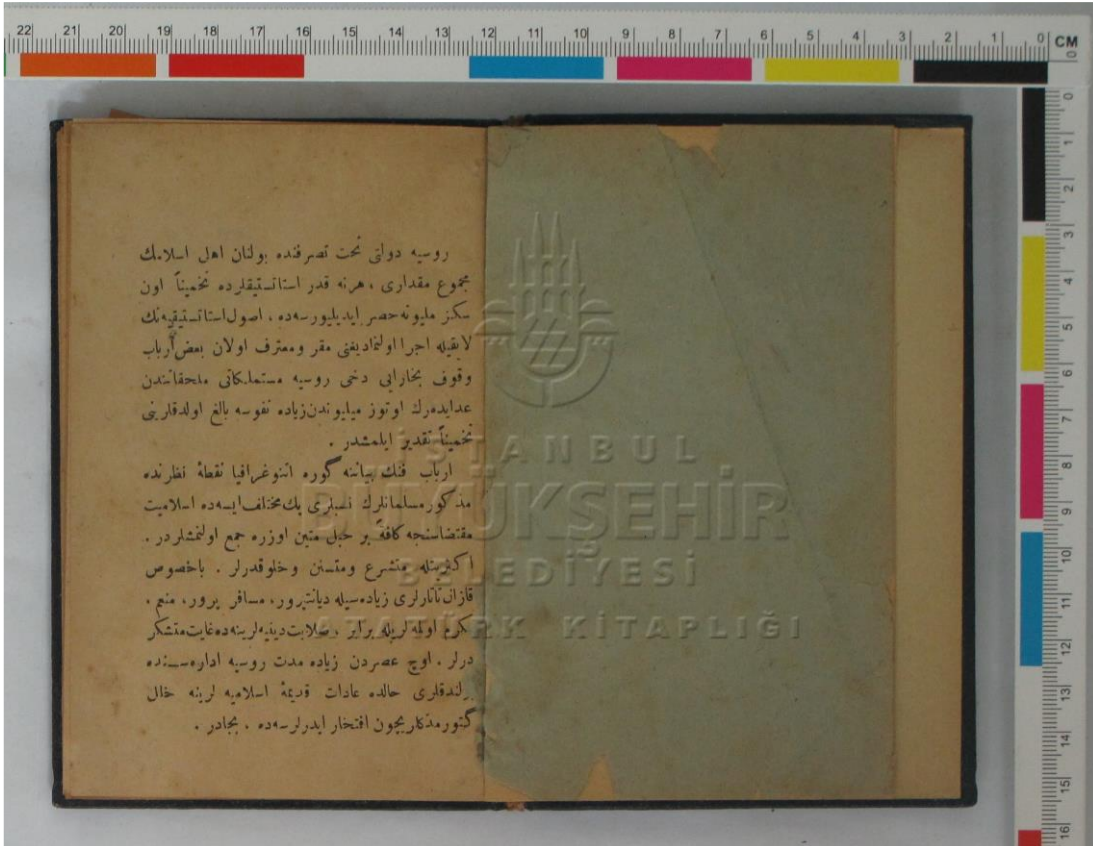 22 21 20 19 18 17 16 15 14 13 12 11 10 9 8 7 6 5 4 3 2 1 0 CM
0 1 2 3 4 5 6 7 8 9 10 11 12 13 14 15 16
روسیه دولتی تحت تصرفنده بولنان اهل اسلامك
مجموع مقداری ، هرنه قدر استاتستیقلرده تخمیناً اون
سکز ملیونه حصر ایدیلیورسه‌ده ، اصول استاتستیقیه‌نك
لایقیله اجرا اولنمادیغنی مقر ومعترف اولان بعض ارباب
وقوف بخارایی دخی روسیه مستملکاتی ملحقاتندن
عدایده‌رك اوتوز میلیوندن زیاده نفوسه بالغ اولدقلرینی
تخمیناً تقدیر ایلمشدر .
ارباب فنك بیاننه کوره اتنوغرافیا نقطهٔ نظرنده
مذکور مسلمانلرك نسبلری پك مختلف ایسه‌ده اسلامیت
مقتضاسنجه کافةً بر حبل متین اوزره جمع اولنمشلردر .
اکثریتله متشرع ومتسنن وخلوقدرلر . باخصوص
قازان تاتارلری زیاده‌سیله دیانتپرور ، مسافر پرور ، منعم ،
مکرم اولمه‌لریله برابر ، صلابت دینیه‌لرینه‌ده غایت متشکر
درلر . اوچ عصردن زیاده مدت روسیه اداره‌سنده
بولندقلری حالده عادات قدیمهٔ اسلامیه لرینه خلل
کتورمدکلریچون افتخار ایدرلرسه‌ده ، بجادر .
İSTANBUL
BÜYÜKŞEHİR
BELEDİYESİ
ATATÜRK KİTAPLIĞI